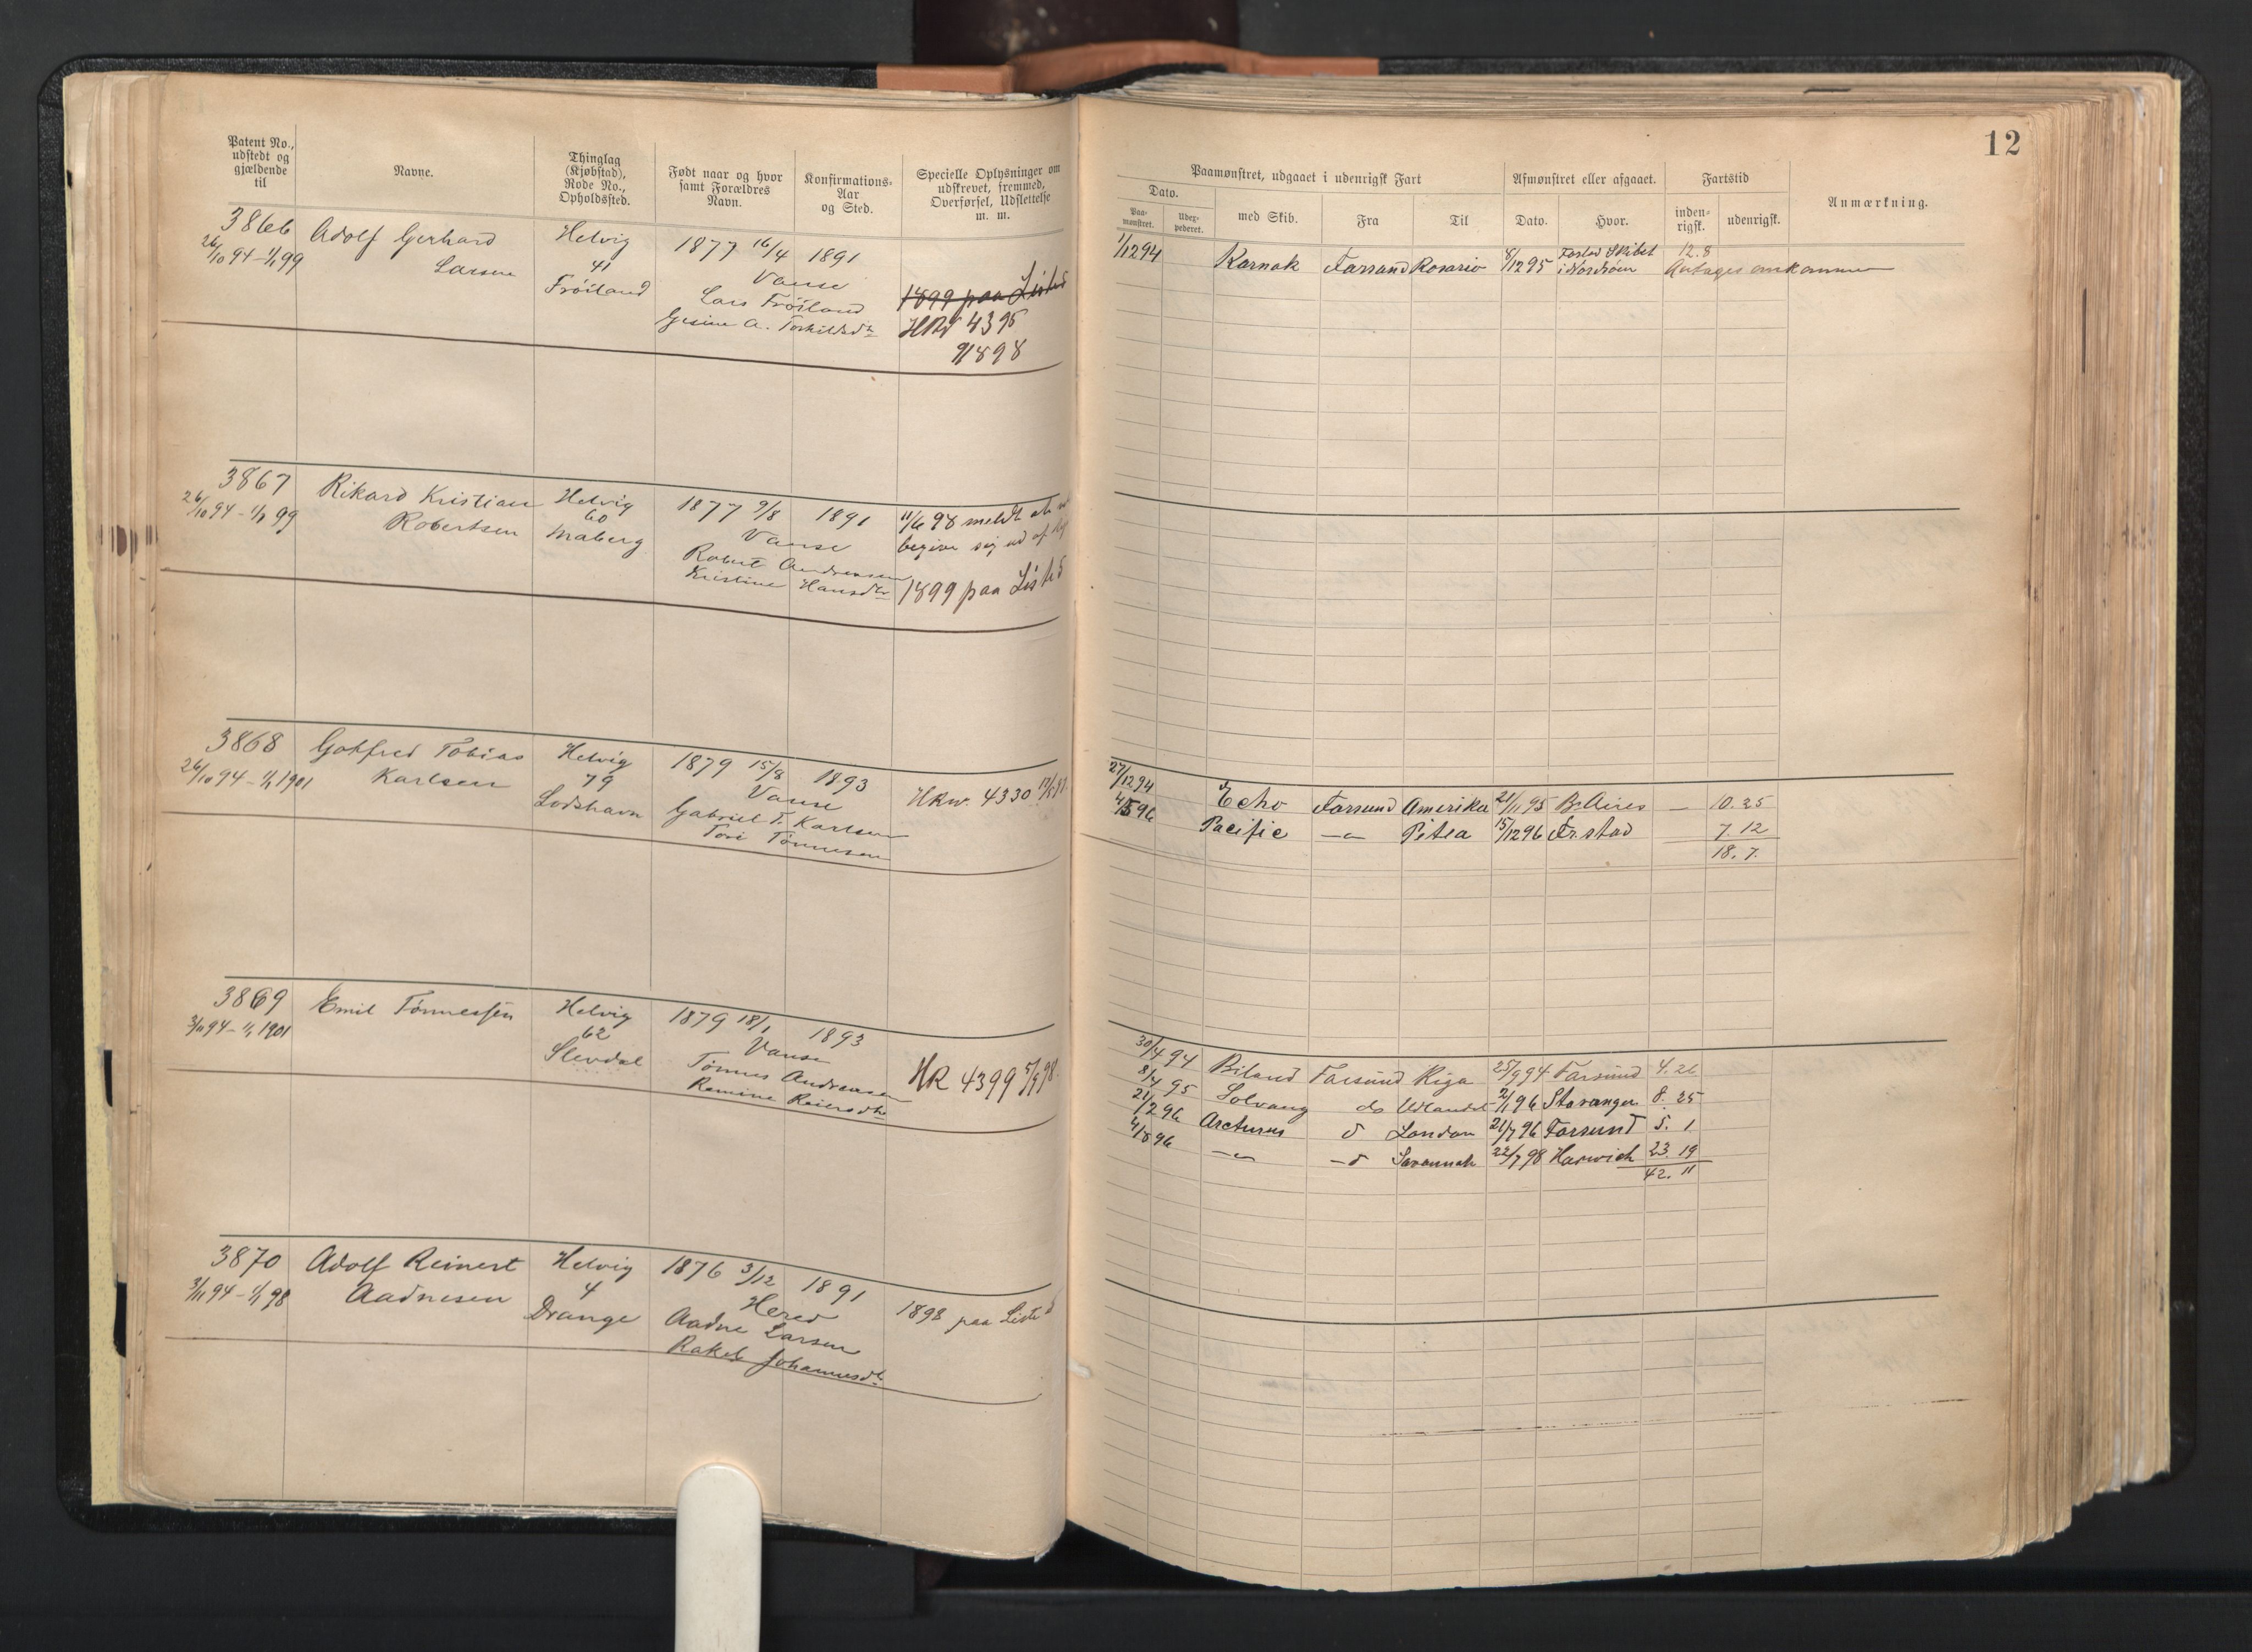 12
Patent No., udstedt og gjældende til
Navne.
Thinglag (Kjøbstad), Rode No., Opholdssted.
Født naar og hvor samt Forældres Navn.
Konfirmations-Aar og Sted.
Specielle Oplysninger om udskrevet, fremmed, Overførsel, Udslettelse m. m.
Paamønstret, udgaaet i udenrigsk Fart
Afmønstret eller afgaaet.
Fartstid
Anmærkning.
Dato.
Paa-mønstret.
Udex-pederet.
med Skib.
Fra
Til
Dato.
Hvor.
inden-rigsk.
udenrigsk.
3866 Adolf Gerhard Helvig 1877 16/4 1891
26/10 94 - 1/1 99 Larsen 41 Vanse 1899 paa Listed
Fröiland Lars Fröiland HRv 4395
Gesine A. Torkildsdtr 9/1898
1/12 94 Karnak Farsund Rosario 8/12 95 Forlod Skibet 12.8
i Nordsöen Antages omkommen
3867 Rikard Kristian Helvig 1877 9/8 1891 11/6 98 meldt at
26/10 94 - 1/1 99 Robertsen 60 Vanse begive sig ud af
Maberg Robert Andreassen
Kristine Hansdtr 1899 paa Listed
3868 Gotfred Tobias Helvig 1879 15/8 1893
26/10 94 - 1/1 1901 Karlsen 79 Vanse HRv. 4330
Lodshavn Gabriel T. Karlsen
Tori Tönnesen
27/12 94 Echo Farsund Amerika 21/11 95 B Aires — 10.25
4/5 96 Pacific —"— Pitea 15/12 96 Fr.stad 7.12
18.7.
3869 Emil Tönnessen Helvig 1879 18/1 1893
3/11 94 - 1/1 1901 62 Vanse
Slevdal Tönnes Andreasen HR 4399 5/9 98.
Remine Reiersdtr
30/4 94 Biland Farsund Riga 25/9 94 Farsund 4.26
8/4 95 Solvang do Udlandet 2/1 96 Stavanger 8.25
21/2 96 Arcturus d London 21/7 96 Farsund 5.1
4/8 96 —"— —d Savannah 22/7 98 Harwich 23.19
42.11
3870 Adolf Reinert Helvig 1876 3/12 1891
3/11 94 - 1/1 98 Aadnesen 4 Hered 1898 paa Listed
Drange Aadne Larsen
Rakel Johannesdtr